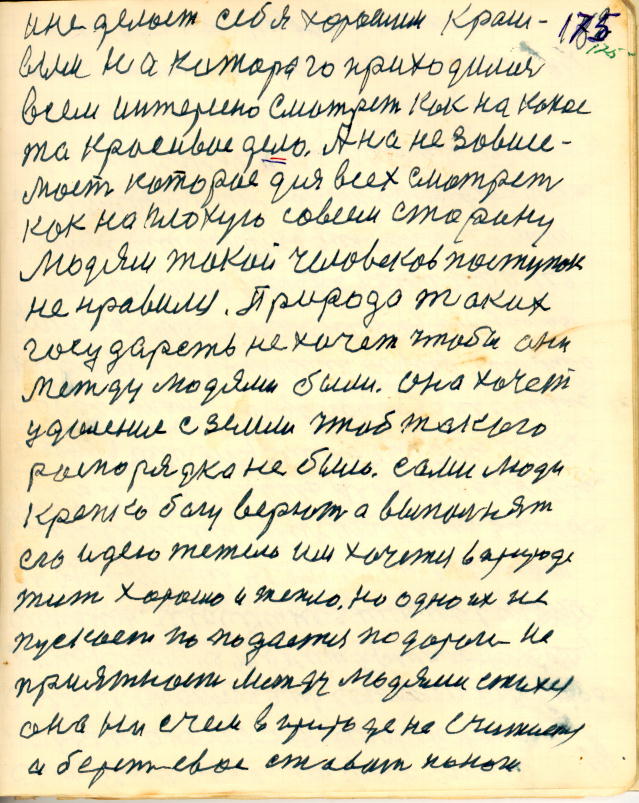 175
175
и не делает себя хорошим краси-
вым на которого приходится
всем интересно смотрет как на какое
та красивое дело. А на не зависе-
мост которое для всех смотрет
как на плохую совсем старану
Людям такой человеков поступок
не нравился. Природа таких
государств не хочет чтобы они
между людями были. она хочет
удаление с земли чтоб такого
распорядка не было. сами люди
крепко богу верют а выполнят
его идею тежело им хочется в природе
жит хорошо и тепло, но одно их не
пускает подается по дороги не
приятност между людями стихия
она ни с чем в природе не считается
и берет свое ставит